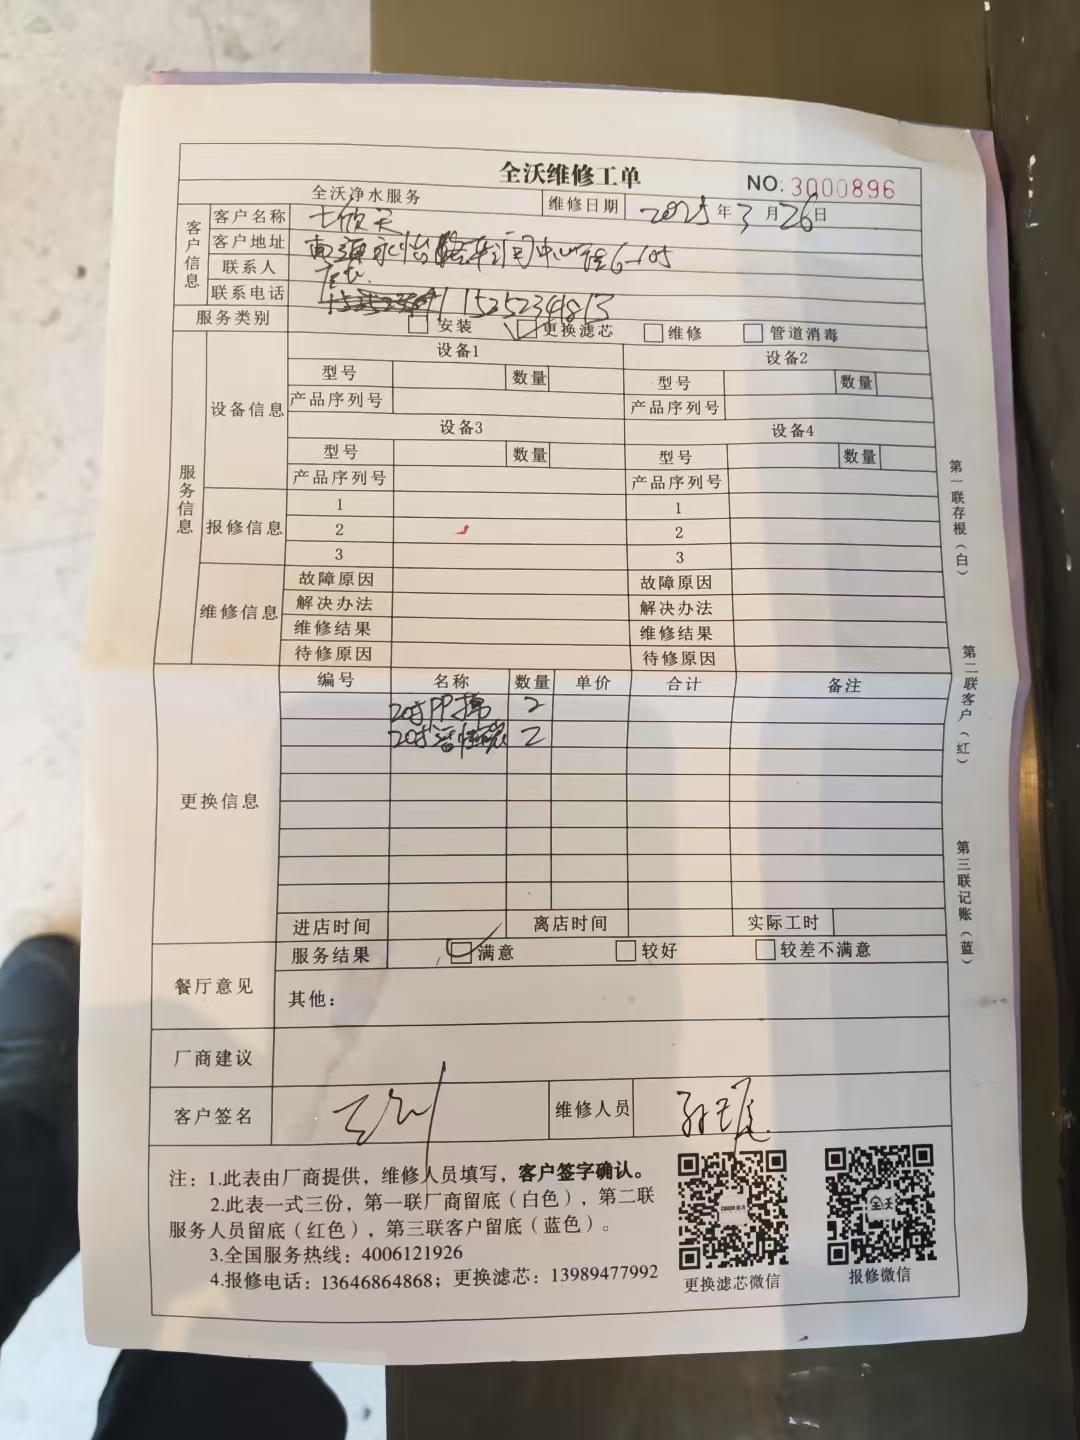 全沃维修工单
NO. 3000896
全沃净水服务 维修日期 2025年3月26日
客户信息
客户名称 七欣天
客户地址 中心 6-105
联系人 店长
联系电话 15252341813
服务类别 安装 更换滤芯 维修 管道消毒
服务信息
设备信息
设备1 设备2
型号 数量 型号 数量
产品序列号 产品序列号
设备3 设备4
型号 数量 型号 数量
产品序列号 产品序列号
报修信息
1 1
2 2
3 3
维修信息
故障原因 故障原因
解决办法 解决办法
维修结果 维修结果
待修原因 待修原因
更换信息
编号 名称 数量 单价 合计 备注
20寸PP棉 2
20寸活性碳 2
进店时间 离店时间 实际工时
餐厅意见
服务结果 满意 较好 较差不满意
其他：
厂商建议
客户签名 维修人员
注：1.此表由厂商提供，维修人员填写，客户签字确认。
2.此表一式三份，第一联厂商留底（白色），第二联
服务人员留底（红色），第三联客户留底（蓝色）。
3.全国服务热线：4006121926
4.报修电话：13646864868；更换滤芯：13989477992
更换滤芯微信 报修微信
全沃
第一联存根（白）
第二联客户（红）
第三联记账（蓝）